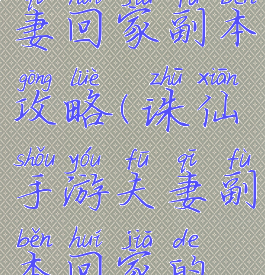 qī huí jiā fù běn
妻回家副本
gōng lüè zhū xiān
攻略(诛仙
shǒu yóu fū qī fù
手游夫妻副
běn huí jiā de
本回家的